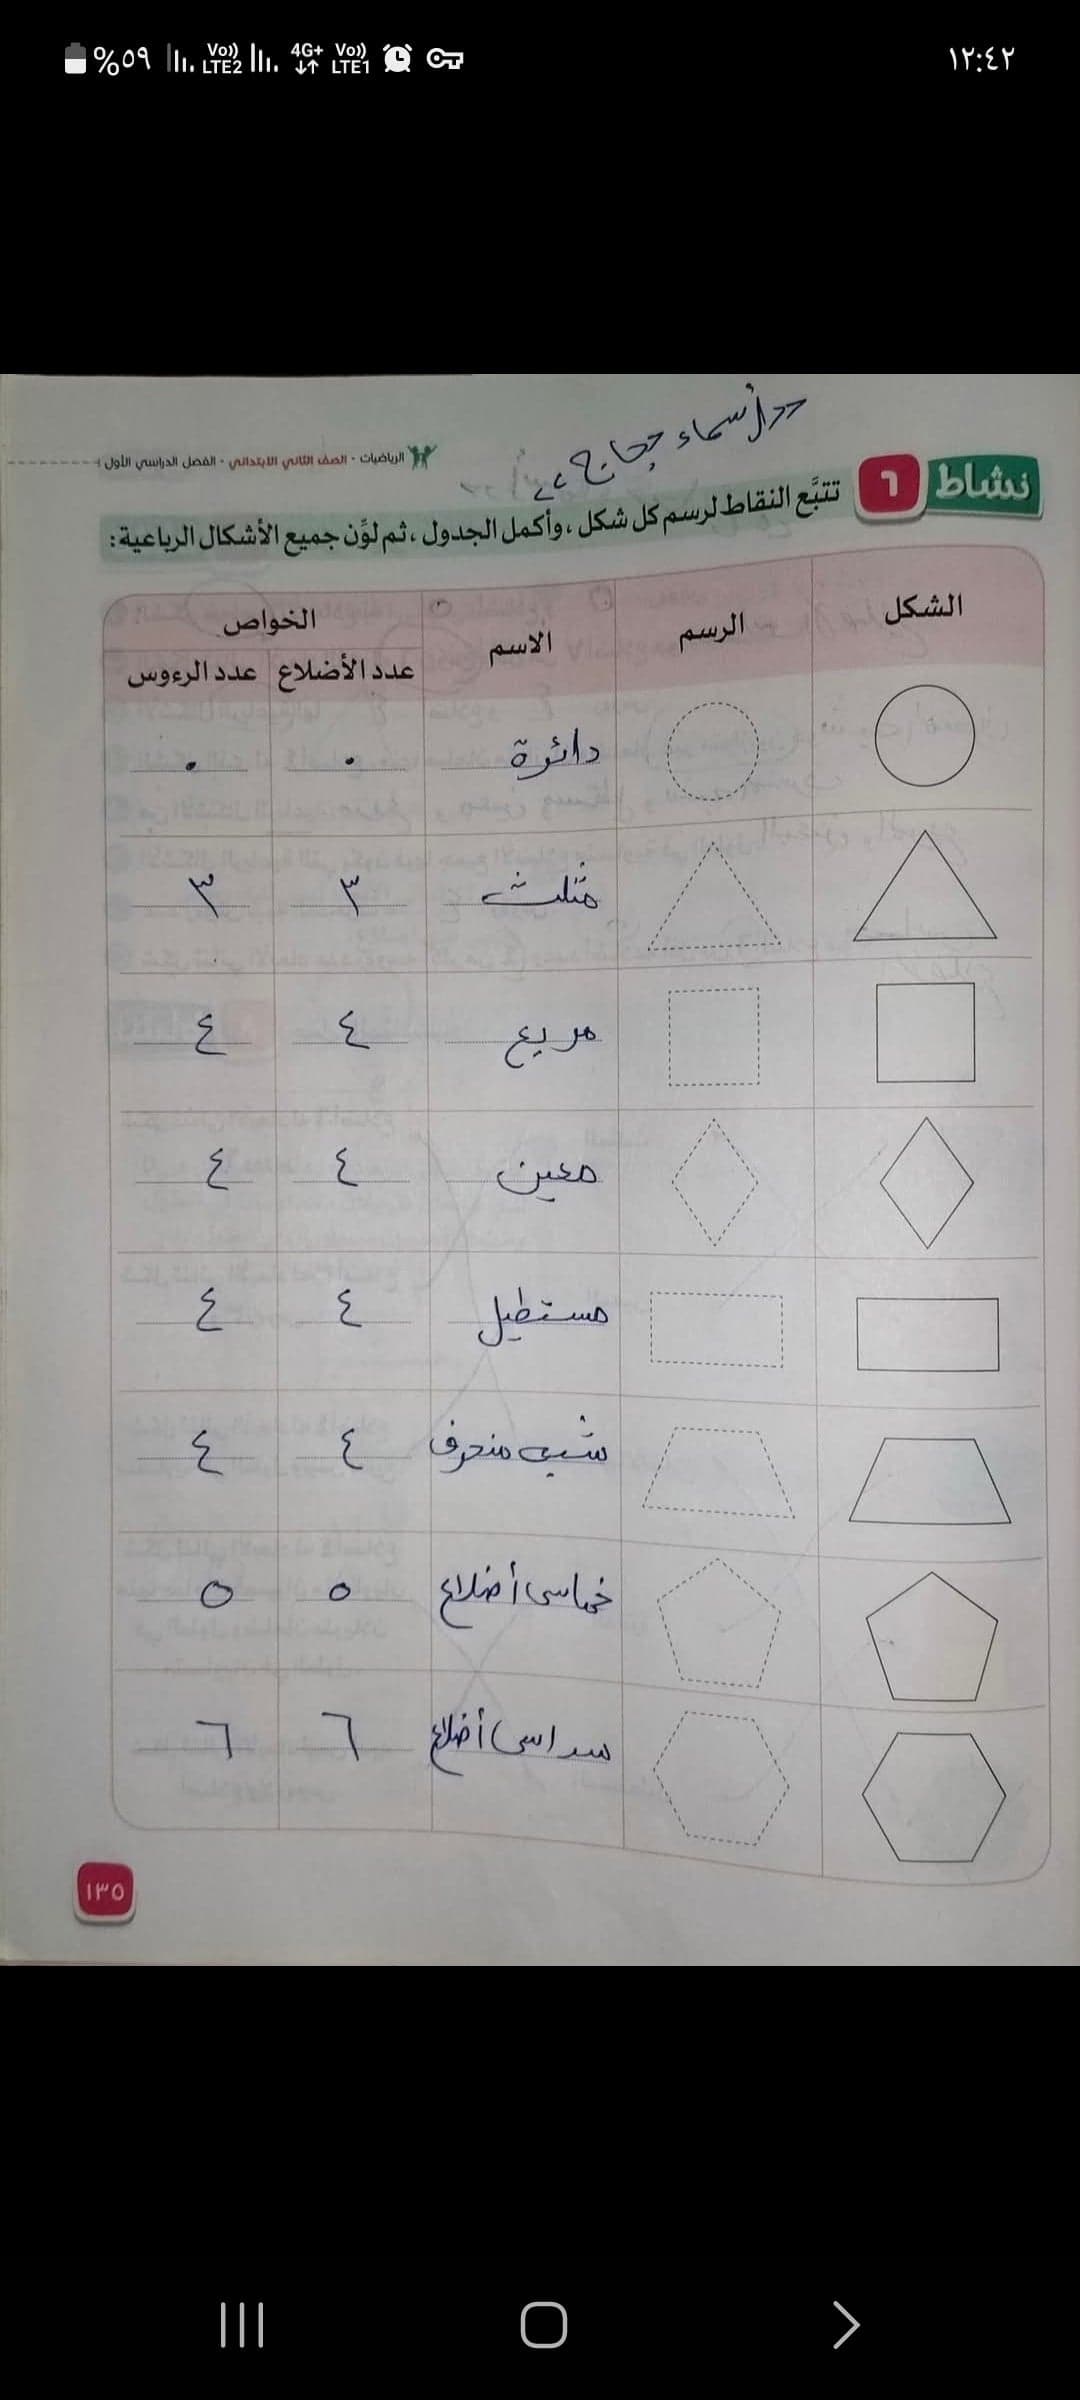 ١٢:٤٢
%٥٩ Vo)) LTE2 4G+ Vo)) LTE1
<<أسماء حجاج>>
الرياضيات - الصف الثاني الابتدائي - الفصل الدراسي الأول
نشاط ٦ تتبَّع النقاط لرسم كل شكل، وأكمل الجدول، ثم لوِّن جميع الأشكال الرباعية:
الشكل الرسم الاسم الخواص
عدد الأضلاع عدد الرءوس
دائرة ٠ ٠
مثلث ٣ ٣
مربع ٤ ٤
معين ٤ ٤
مستطيل ٤ ٤
شبه منحرف ٤ ٤
خماسى أضلاع ٥ ٥
سداسى أضلاع ٦ ٦
١٣٥